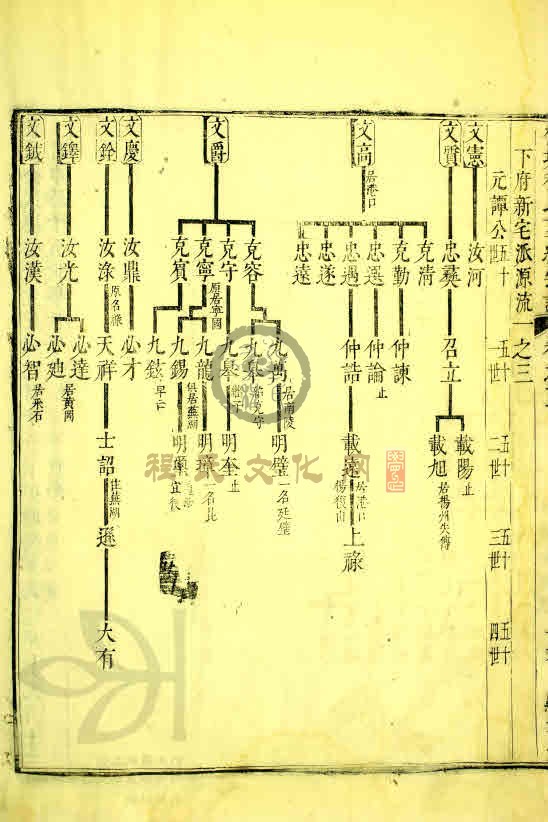 下府新宅派源流一之三
元譚公五十世
五十一世
五十二世
五十三世
五十四世
文憲
汝河
文質
忠義
召立
載陽 止
載旭 居揚州失傳
文高 居港口
克清
克勤
仲諫
忠選
仲論 止
忠遇
仲誥
載遠 居港口楊狼山
上祿
忠遂
忠遠
文爵
克容
九萬 居南陵
明璧 一名廷璧
九皋
克守
九皋 繼子
明奎 止
克寧 原居寧國
九龍
明
克賓
九錫 俱居蕪湖
明
九鉉 早亡
文慶
汝鼎
必才
文銓
汝淥
天祥
士韶 住蕪湖
遜
大有
文鐸
汝光
必達 居黃岡
必迪
文鉞
汝漢
必智 居采石
程氏文化网